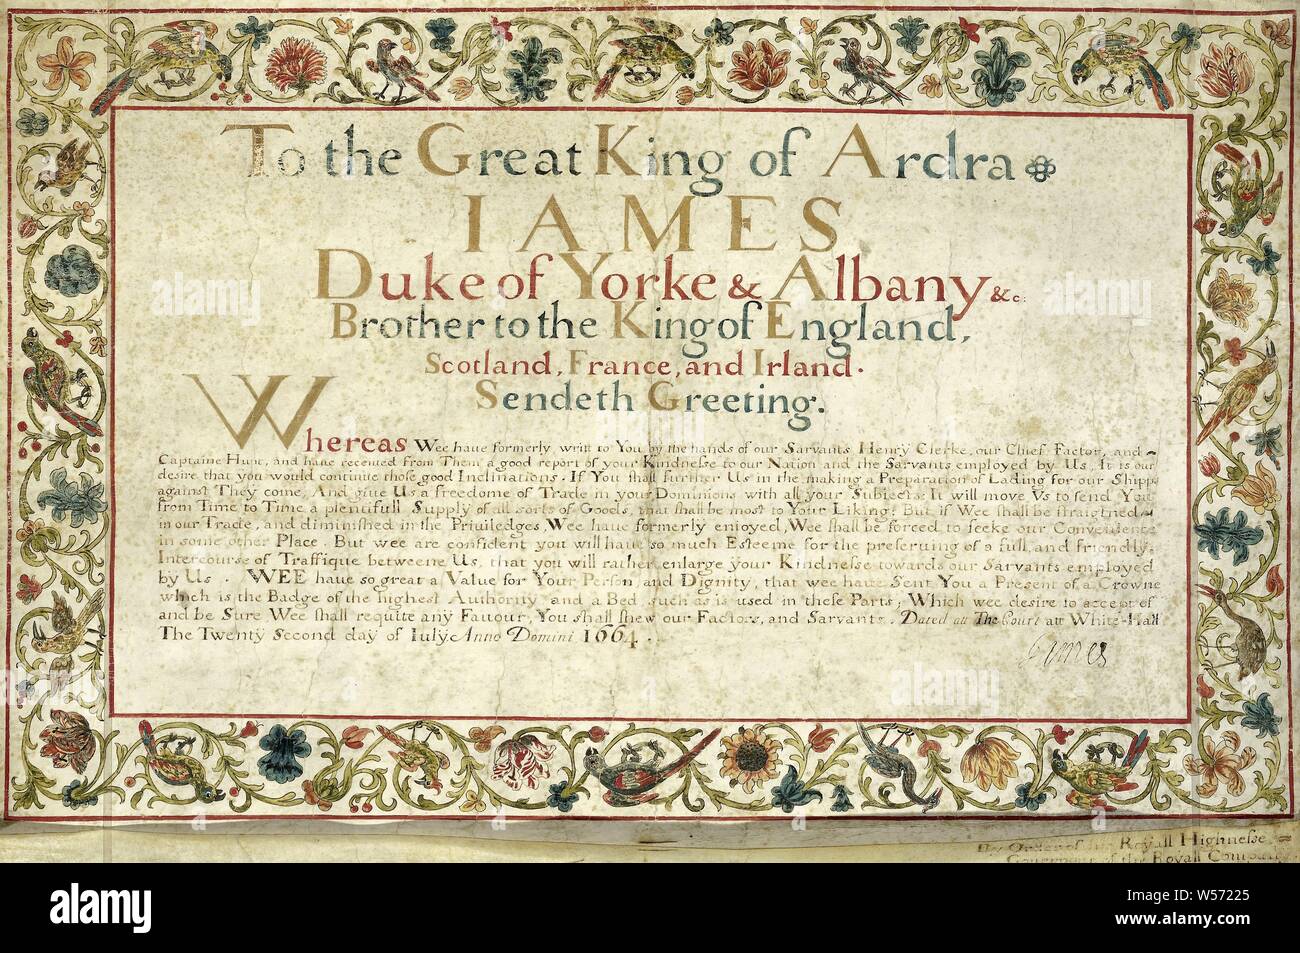 To the Great King of Ardra
IAMES
Duke of Yorke & Albany &c:
Brother to the King of England,
Scotland, France, and Irland.
Sendeth Greeting.
Whereas Wee haue formerly writt to You by the hands of our Sarvants Henry Clerke, our Chief Factor, and
Captaine Hunt, and haue receiued from Them a good report of your Kindnesse to our Nation and the Sarvants employed by Us, It is our
desire that you would continue those good Inclinations. If You shall further Us in the making a Preparation of Lading for our Shipps
against They come, And giue Us a freedome of Trade in your Dominions with all your Subiects: It will move Vs to send You
from Time to Time a plentifull Supply of all sorts of Goods, that shall be most to Your Liking: But if Wee shall be straightned
in our Trade, and diminished in the Priuiledges Wee haue formerly enioyed, Wee shall be forced to seeke our Convenience
in some other Place. But wee are confident you will haue so much Esteeme for the preseruing of a full, and friendly
Intercourse of Traffique betweene Us, that you will rather enlarge your Kindnesse towards our Sarvants employed
by Us. WEE haue so great a Value for Your Person and Dignity, that wee haue Sent You a Present of a Crowne
which is the Badge of the highest Authority and a Bed such as is used in these Parts; Which wee desire to accept of
and be Sure Wee shall requite any Fauour, You shall shew our Factors, and Sarvants. Dated att The Court att White-Hall
The Twenty Second day of Iuly Anno Domini 1664.
James
By Order of his Royall Highnesse
Governour of the Royall Company
alamy
Image ID: W57225
www.alamy.com